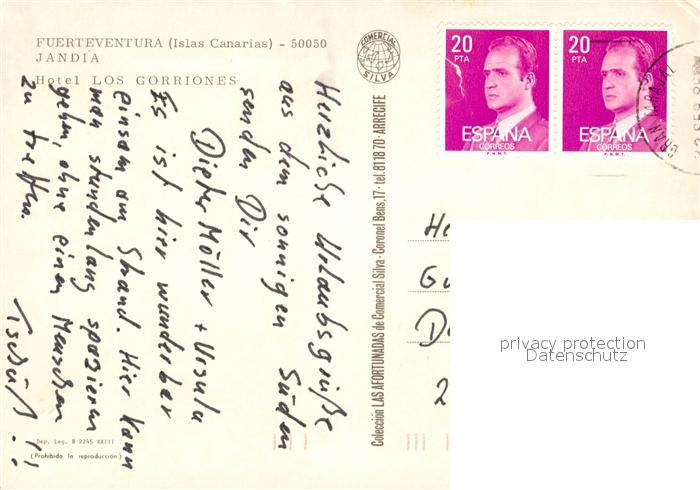 FUERTEVENTURA (Islas Canarias) - 50050
JANDIA
Hotel LOS GORRIONES
COMERCIAL
SILVA
20
PTA
ESPAÑA
CORREOS
F.N.M.T.
20
PTA
ESPAÑA
CORREOS
F.N.M.T.
GRAN TARAJAL
Herzliche Urlaubsgrüße
aus dem sonnigen Süden
senden Dir
Dieter Möller + Ursula
Es ist hier wunderbar
einsam am Strand. Hier kann
man stundenlang spazieren
gehen ohne einen Menschen
zu treffen.
Tschüß!!
Colección LAS AFORTUNADAS de Comercial Silva - Coronel Bens, 17 - tel. 81 18 70 - ARRECIFE
He
Gu
D
2
privacy protection
Datenschutz
Dep. Leg. B 2245 XXIII
(Prohibida la reproducción)